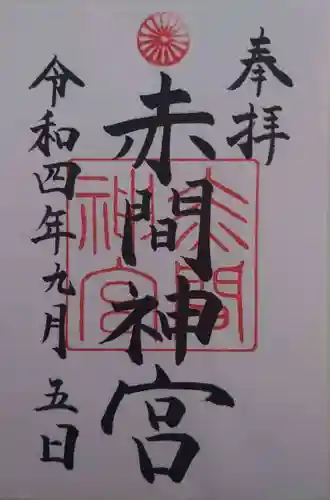 奉拝
赤間神宮
赤間神宮
令和四年九月五日